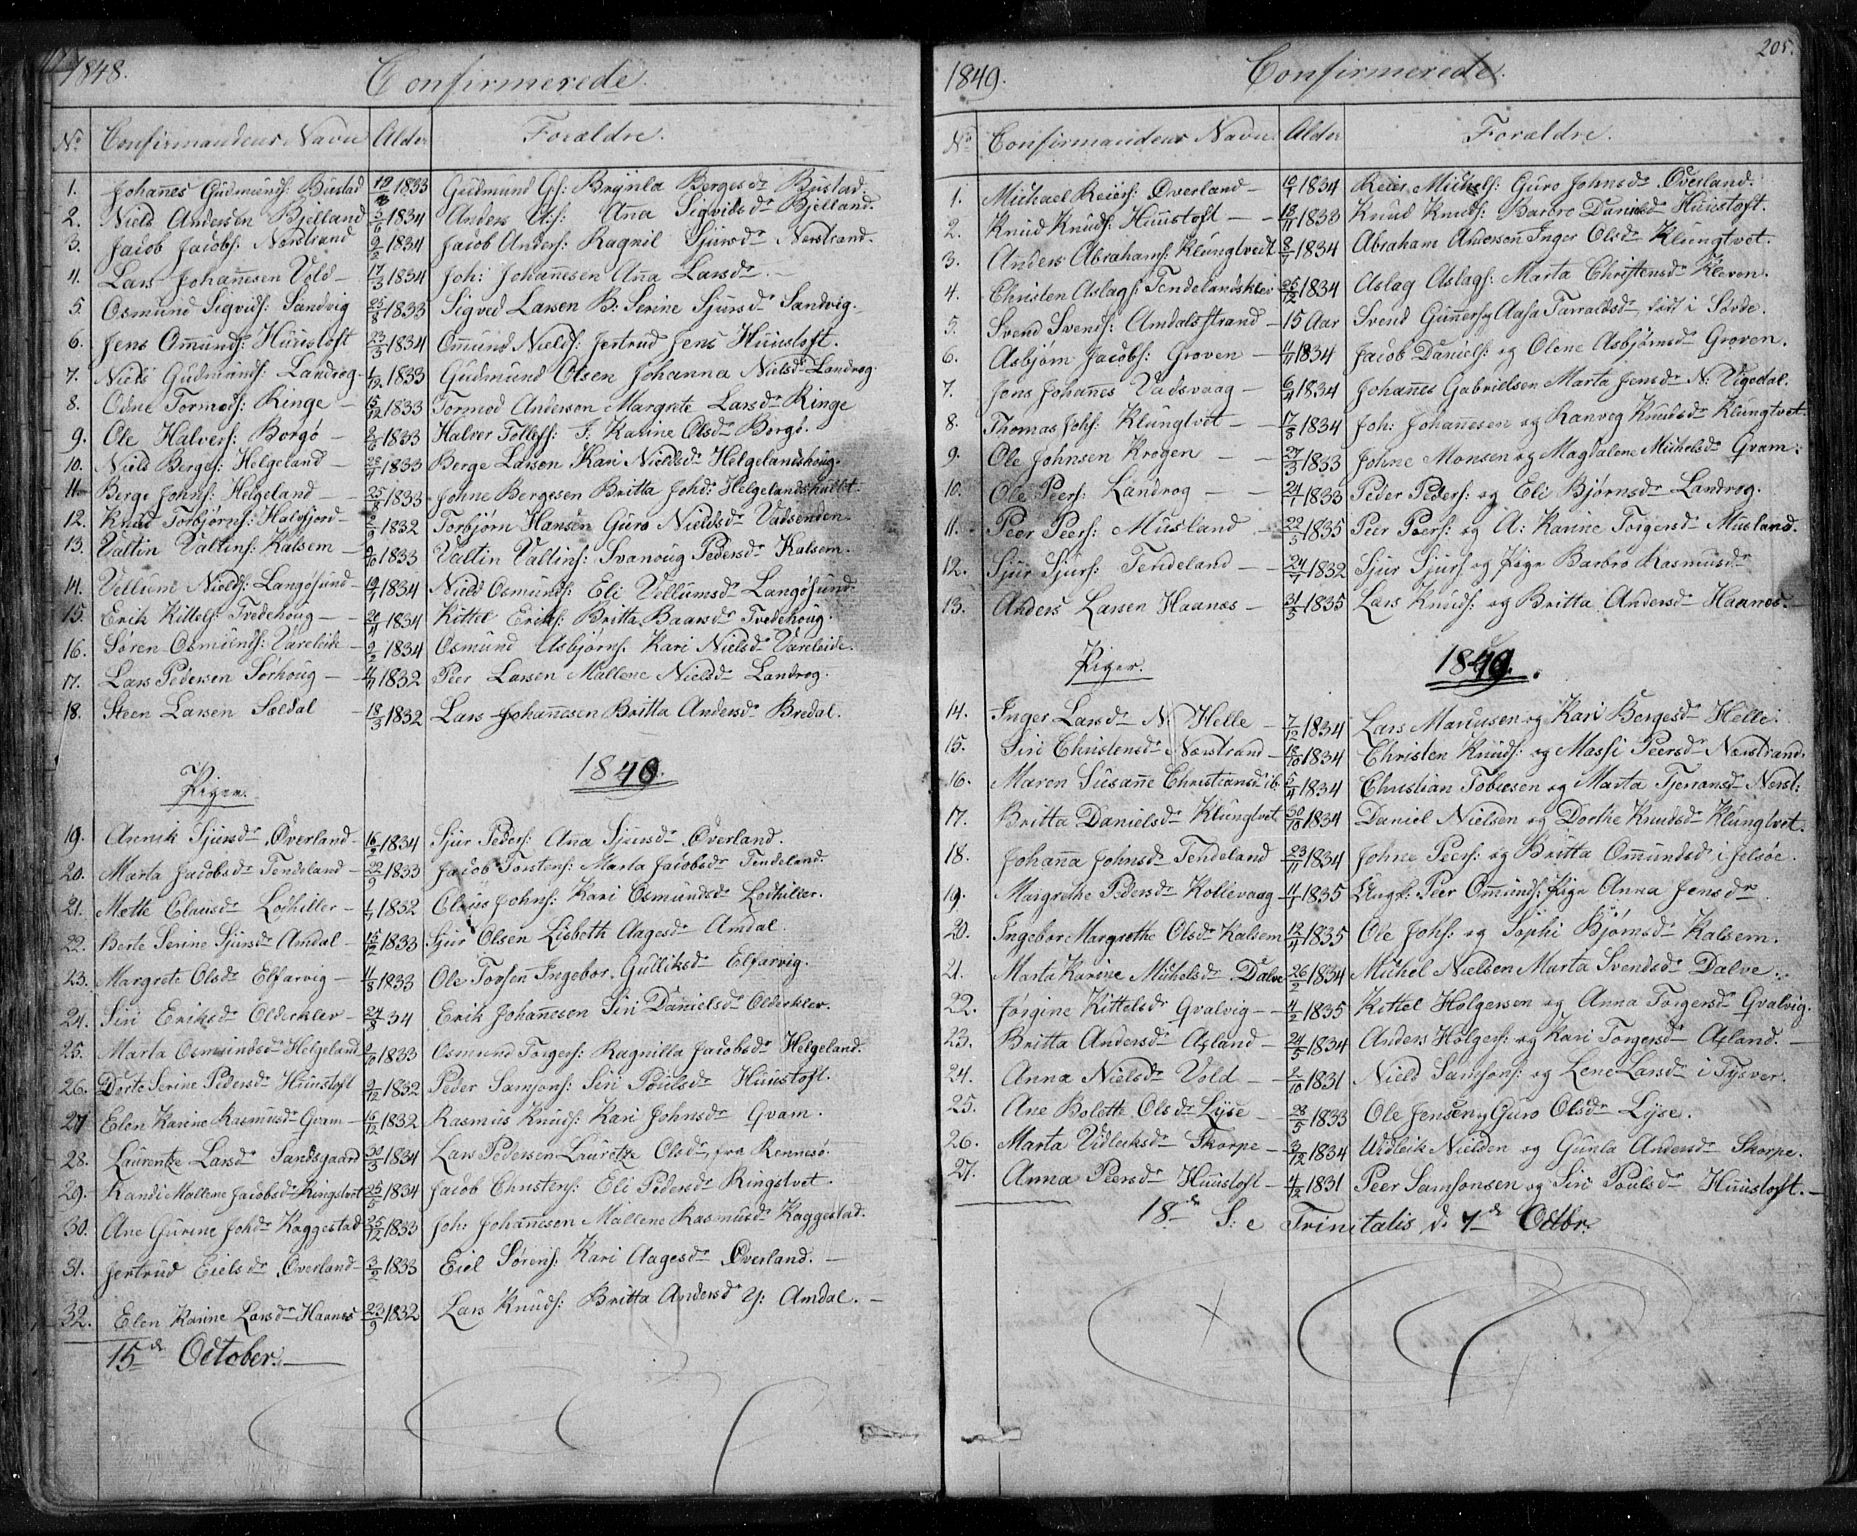 1848. Confirmerede.
No Confirmandens Navn Alder Forældre.
1. Johanes Gudmunds: Bustad 1833 Gudmund Gs: Brynla Bergesdr Bustad.
2. Niels Andersen Bjelland 3/6 1834 Anders A:s: Ana Sigvidsdr Bjelland.
3. Jacob Jacobs: Nerstrand 9/2 1834 Jacob Anders: Ragnil Sjursdr Nerstrand.
4. Lars Johanesen Vold – 17/3 1834 Joh: Johanesen Ana Larsdr –
5. Osmund Sigvids: Sandvig 25/8 1833 Sigved Larsen B: Serine Sjursdr Sandvig.
6. Jens Omunds: Huustoft 23/3 1834 Omund Niels: Jertrud Jens Huustoft.
7. Niels Gudmunds: Landrog – 1833 Gudmund Olsen Johanna Nielsdr Landrog.
8. Odne Tormods: Ringe – 15/12 1833 Tormod Anderson Margrete Larsdr Ringe
9. Ole Halvors: Borgö – 1833 Halvor Tollefs: I. Karine Olsdr Borgö.
10. Niels Berges: Helgeland – 1833 Berge Larsen Kari Nielsdr Helgelandshoug.
11. Berge Johns: Helgeland – 25/8 1833 Johne Bergesen Britta Johdr Helgelandshultet.
12. Knud Torbjørns: Halsfjord – 1832 Torbjørn Hansen Guro Nielsdr Vadsenden.
13. Valtin Valtins: Kalsem – 1833 Valtin Valtins: Svanoug Pedersdr Kalsem.
14. Vellum Niels: Langøsund – 1834 Niels Osmunds: Eli Vellumsdr Langøsund.
15. Erik Kittels: Tvedehoug – 1834 Kittel Eriks: Britta Baarsdr Tvedehoug.
16. Søren Osmunds: Vareleide – 9/2 1834 Osmund Asbjørns: Kari Nielsdr Vareleide.
17. Lars Pedersen Sørhoug – 1832 Peer Larsen Mallene Nielsdr Landrog.
18. Steen Larsen Sældal – 18/3 1832 Lars Johanesen Britta Andersdr Bredal.
1848.
Piger.
19. Annik Sjursdr Øverland – 16/2 1834 Sjur Peders: Ana Sjursdr Øverland.
20. Marta Jacobsdr Tendeland – 22/9 1833 Jacob Torstens: Marta Jacobsdr Tendeland.
21. Mette Clausdr Lodhiller – 1832 Claus Johns: Kari Osmundsdr Lodhiller.
22. Berte Serine Sjursdr Amdal – 15/2 1833 Sjur Olsen Lisbeth Aagesdr Amdal.
23. Margrete Olsdr Elfarvig – 4/8 1833 Ole Torsen Ingebor. Gulliksdr Elfarvig.
24. Siri Eriksdr Olderkler – 24/8 34 Erik Johanesen Siri Danielsdr Olderkler.
25. Marta Osmundsdr Helgeland 2/10 1833 Osmund Torgers: Ragnilla Jacobsdr Helgeland.
26. Dorte Serine Pedersdr Huustoft 9/12 1832 Peder Samsons: Siri Poulsdr Huustoft.
27 Elen Karine Rasmusdr Gvam – 16/12 1832 Rasmus Knuds: Kari Johnsdr Gvam.
28. Laurentze Larsdr Sandsgaard 30/5 1834 Lars Pedersen Lauretze Olsdr, fra Rennesö.
29. Randi Mallene Jacobsdr Ringstvet 25/5 1834 Jacob Christens: Eli Pedersdr Ringstvet.
30. Ane Gurine Johdr Kaggestad 25/12 1833 Joh: Johanesen Mallene Rasmusdr Kaggestad.
31. Jertrud Eielsdr Øverland – 3/2 1833 Eiel Sørens: Kari Aagesdr Øverland. –
32. Elen Karine Larsdr Haanes 23/9 1832 Lars Knuds: Britta Andersd Y: Amdal. –
15de October. –
205.
1849. Confirmerede.
No Confirmandens Navn Alder Forældre.
1. Michael Reiers: Øverland – 1834 Reier Michels: Guro Johnsdr Øverland.
2. Knud Knuds: Huustoft – – 1833 Knud Knuds: Barbro Danielsd Huustoft.
3. Anders Abrahams: Klungtvedt 1834 Abraham Andersen Inger Olsdr Klungtvet.
4. Christen Aslags: Tendelandsklev 25/12 1834 Aslag Aslags: Marta Christensdr Kleven.
5. Svend Svends: Amdalsstrand – 15 Aar Svend Guners: og Aasa Tarraldsdr, født i Sövde.
6. Asbjørn Jacobs: Groven – 1834 Jacob Daniels: og Olene Asbjørnsdr Groven.
7. Jens Johanes Vadsvaag – 1834 Johanes Gabrielsen Marta Jensdr N: Vigedal.
8. Thomas Johs: Klungtvet – 17/8 1834 Joh: Johanesen og Ranveg Knudsdr Klungtvet.
9. Ole Johnsen Krogen – – 27/3 1833 Johne Monsen og Magdalene Michelsdr Gvam.
10. Ole Peers: Landrog – – 1833 Peder Peders: og Eli Bjørnsdr Landrog.
11. Peer Peers: Musland – 22/5 1835 Peer Peers: og A: Karine Torgersdr Musland.
12. Sjur Sjurs: Tendeland – – 24/7 1832 Sjur Sjurs: og Pige Barbro Rasmusdr
13. Anders Larsen Haanes – 31/5 1835 Lars Knuds: og Britta Andersdr Haanes. –
Piger. 1849.
14. Inger Larsdr N: Helle – 7/12 1834 Lars Marcusen og Kari Bergesdr Helle.
15. Siri Christensdr Nerstrand – 18/10 1834 Christen Knuds: og Massi Peersdr Nerstrand.
16. Maren Susane Christiansdr ib. 5/4 1834 Christian Tobiesen og Marta Tjerransdr Nerst:
17. Britta Danielsdr Klungtvet 30/10 1834 Daniel Nielsen og Dorthe Knudsdr Klungtvet.
18. Johana Johnsdr Tendeland 23/11 1834 Johne Peers: og Britta Omundsd i Jelsöe.
19. Margrethe Pedersdr Kollevaag – 1835 Ungk: Peer Omunds: Pige Anna Jensdr
20. Ingebor Margrethe Olsdr Kalsem 1835 Ole Johs: og Sophi Bjørnsdr Kalsem.
21. Marta Karine Michelsdr Dalve 26/2 1834 Michel Nielsen Marta Svendsdr Dalve.
22. Jørgine Kittelsdr Gvalvig – – 4/2 1835 Kittel Holgersen og Anna Torgersdr Gvalvig.
23. Britta Andersdr Aeland – 24/5 1834 Anders Holgers: og Kari Torgersdr Aeland. –
24. Anna Nielsdr Vold – – 2/10 1831 Niels Samsons: og Lene Larsdr i Tysver.
25. Ane Bolette Olsdr Lyse – 28/5 1833 Ole Jensen og Guro Olsdr Lyse.
26. Marta Vidleiksdr Skorpe – 3/12 1834 Vidleik Nielsen og Gunla Andersdr Skorpe.
27. Anna Peersdr Huustoft – 4/12 1831 Peer Samsonsen og Siri Poulsdr Huustoft. –
18de S: e Trinitatis d. 7de Octbr.